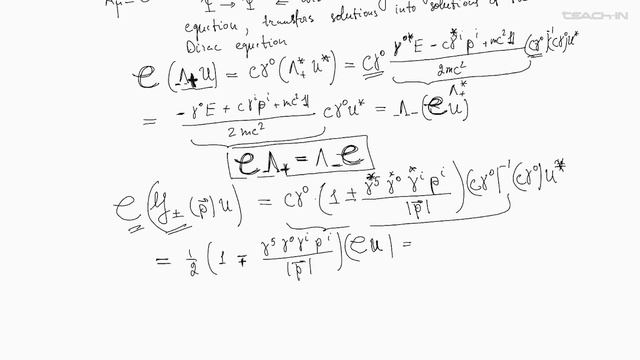 TEACH-IN
equation, transfers solutions into solutions of
Dirac equation
C (Λ₊ u) = cγ⁰ (Λ₊* u*) = cγ⁰ (γ⁰* E − cγ^i* p^i + mc² 𝟙)/(2mc²) (cγ⁰)⁻¹ (cγ⁰) u*
Λ₊*
= (−γ⁰E + cγ^i p^i + mc² 𝟙)/(2mc²) cγ⁰u* = Λ₋ (C u)
C Λ₊ = Λ₋ C
C (y± (p⃗) u) = cγ⁰ · (1 ± γ⁵* γ⁰* γ^i* p^i/|p⃗|) (cγ⁰)⁻¹ (cγ⁰) u*
= ½ (1 ∓ γ⁵ γ⁰ γ^i p^i/|p⃗|) (C u) =